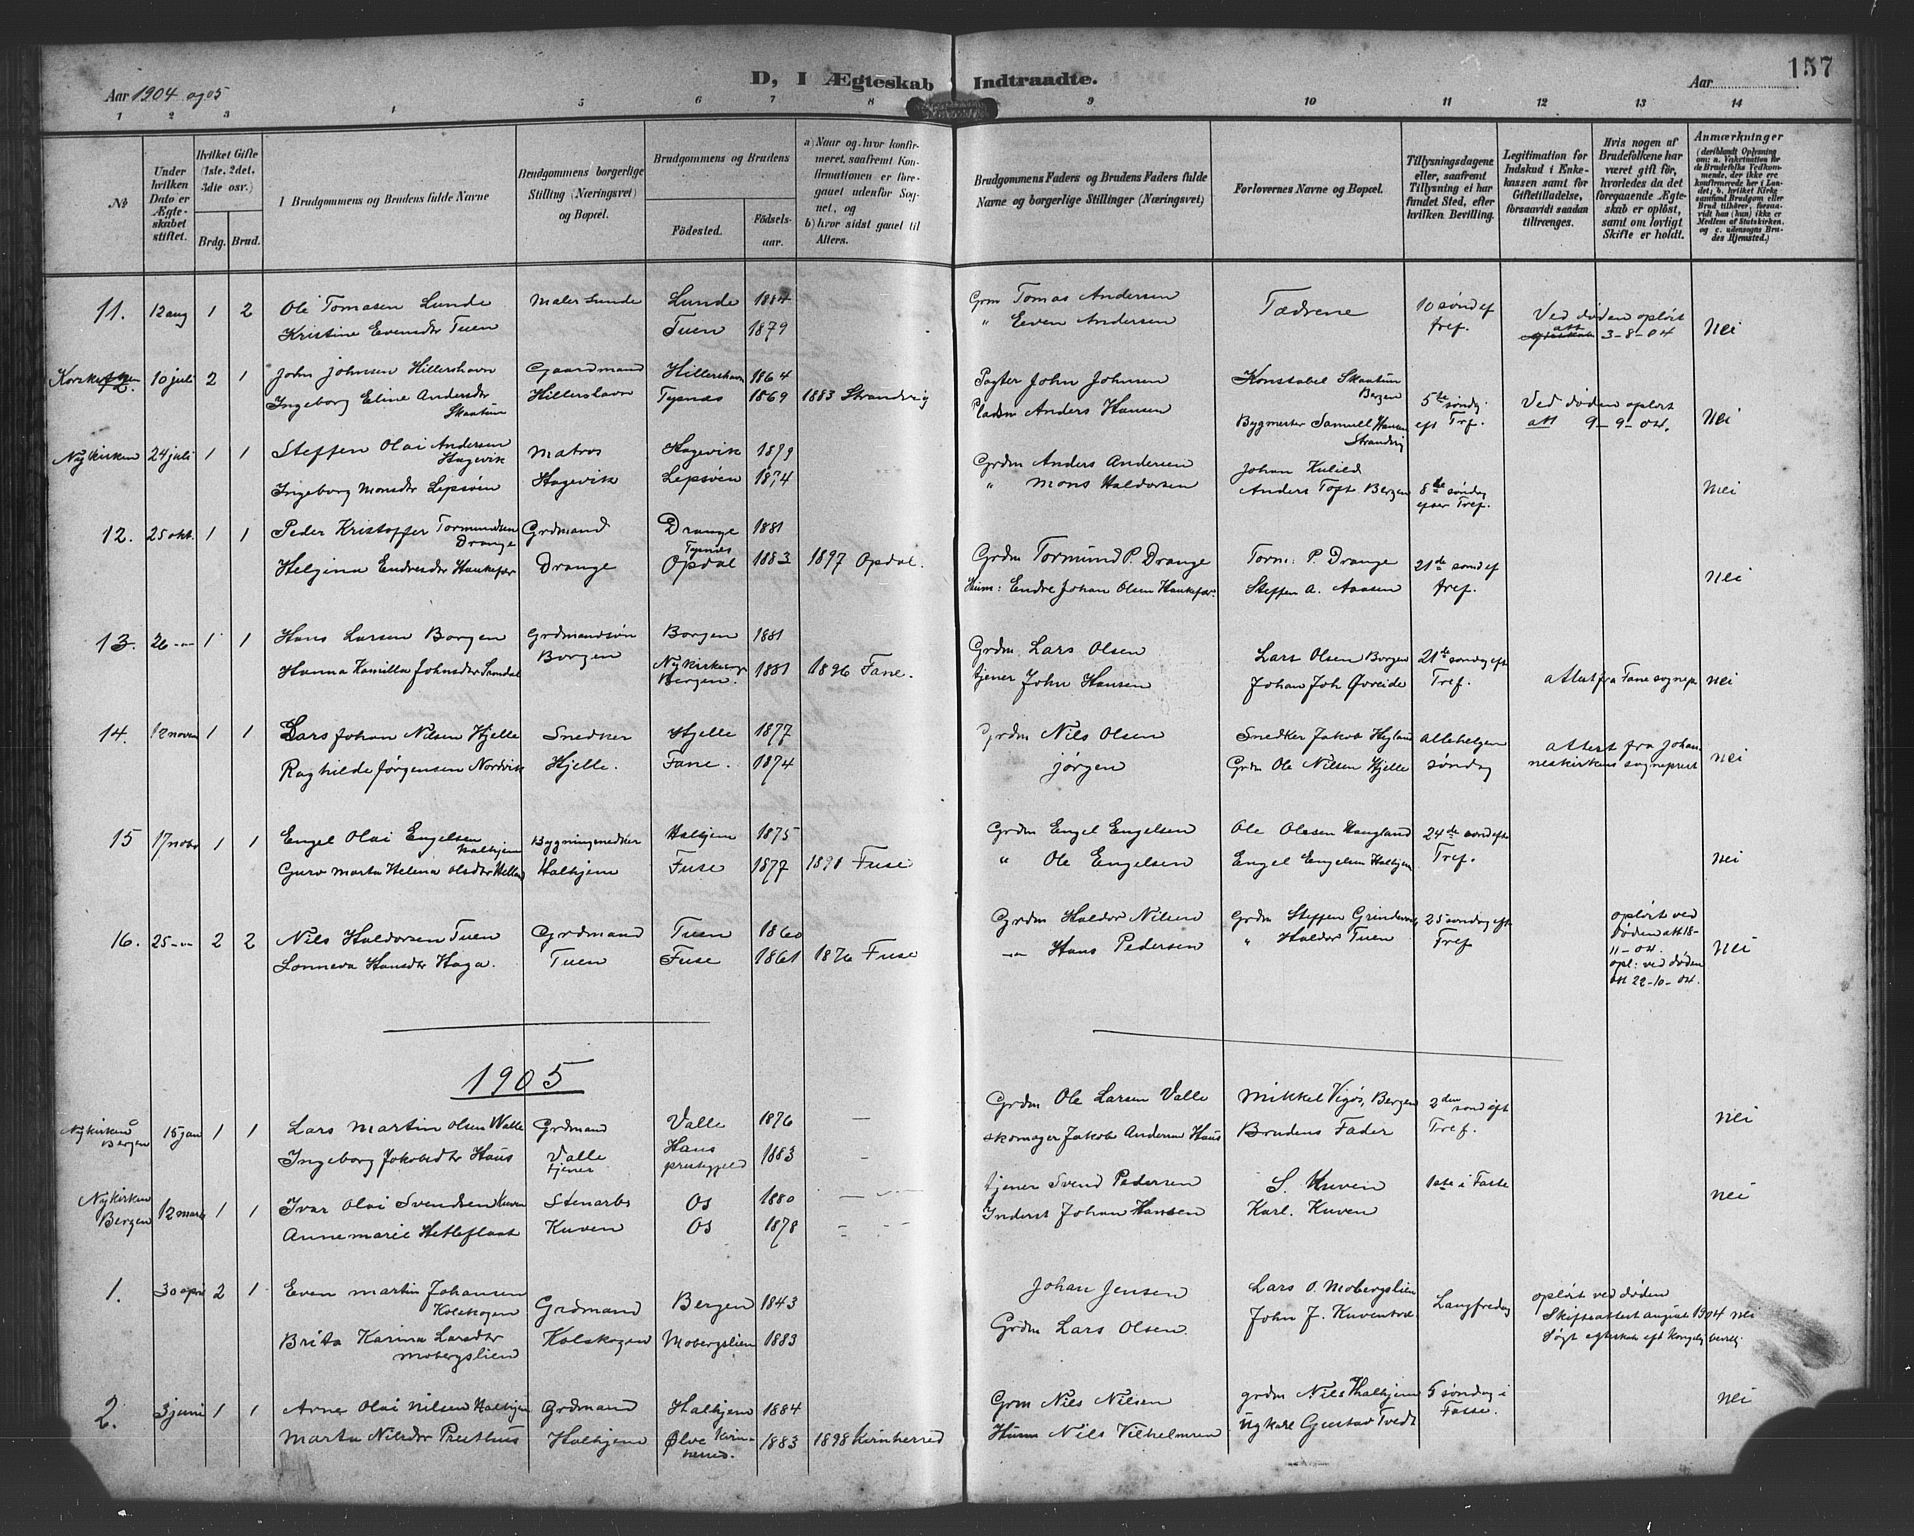 157
D, I Ægteskab Indtraadte.
Aar 1904 og 05
Aar
1 2 3 4 5 6 7 8 9 10 11 12 13 14
No
Under hvilken Dato er Ægteskabet stiftet.
Hvilket Gifte (1ste, 2det, 3die osv.)
Brdg. Brud.
Brudgommens og Brudens fulde Navne
Brudgommens borgerlige Stilling (Næringsvei) og Bopæl.
Brudgommens og Brudens
Fødested.
Fødselsaar.
a) Naar og hvor konfirmeret, saafremt Konfirmationen er foregaaet udenfor Sognet, og
b) hvor sidst gaaet til Alters.
Brudgommens Faders og Brudens Faders fulde Navne og borgerlige Stillinger (Næringsvei)
Forlovernes Navne og Bopæl.
Tillysningsdagene eller, saafremt Tillysning ei har fundet Sted, efter hvilken Bevilling.
Legitimation for Indskud i Enkekassen samt for Giftetilladelse, forsaavidt saadan tiltrænges.
Hvis nogen af Brudefolkene har været gift før, hvorledes da det foregaaende Ægteskab er opløst, samt om lovligt Skifte er holdt.
Anmærkninger
11. 12 aug 1 2 Ole Tomasen Lunde Maler Lunde Lunde 1884 Grm Tomas Andersen Fædrene 10 sønd ef tref. Ved døden opløst att 3-8-04 Nei
Kristine Evensdtr Tuen Tuen 1879 " Even Andersen
10 juli 2 1 John Johnsen Hillershavn Gaardmand Hillershavn 1864 John Johnsen Konstabel Skaatun Bergen 5te søndg eft Trf. Ved døden opløst att 9-9-04. Nei
Ingeborg Eline Andersdtr Skaatun Hillershavn Tysnes 1869 1883 Strandvig Pladsm Anders Hansen Bygmester Samuel Hansen Strandvig
Nykirken 24 juli 1 1 Steffen Olai Andersen Hagevik Matros Hagevik 1879 Grdm Anders Andersen Johan Kulild 8de søndag efter Tref. Nei
Ingeborg Monsdtr Lepsøen Hagevik Lepsøen 1874 " Mons Haldorsen Anders Toft Bergen
12. 25 okt. 1 1 Peder Kristoffer Tormundsen Drange Grdmand Drange 1881 Grdm Tormund P. Drange Torm: P. Drange 21de sønd ef tref. Nei
Helgina Endresdtr Haukefær Drange Tysnes Opdal 1883 1897 Opdal. Husm: Endre Johan Olsen Haukefær. Steffen A. Aasen
13. 26 -"- 1 1 Hans Larsen Borgen Grdmandsøn Borgen 1881 Grdm Lars Olsen Lars Olsen Borgen 21de søndag eft Tref. attest fra Fane sognep. Nei
Hanna Kamilla Johnsdtr Samdal Borgen Nykirken Bergen. 1881 1896 Fane. tjener John Hansen Johan Joh Øvreide
14. 12 novem 1 1 Lars Johan Nilsen Hjelle Snedker Hjelle 1877 Grdm Nils Olsen Snedker Jakob Hegland allehelgen søndag attest fra Johanneskirkens sogneprest Nei
Raghilde Jørgensen Nordvik Hjelle. Fane. 1874 Jørgen Grdm Ole Nilsen Hjelle
15 17 nobr 1 1 Engel Olai Engelsen Halhjem Bygningsnedker Halhjem 1875 Grdm Engel Engelsen Ole Olesen Haugland 24de sønd eft Tref. Nei
Guro Marta Helena Olsdtr Helland Halhjem Fuse 1877 1891 Fuse " Ole Engelsen Engel Engelsen Halhjem
16. 25 -"- 2 2 Nils Haldorsen Tuen Grdmand Tuen 1860 Grdm Haldor Nilsen Grdm Steffen Grindevoll 25 søndag eft Tref opløst ved døden att 18-11-04. Nei
Lonneva Hansdtr Haga. Tuen Fuse 1861 1876 Fuse -"- Hans Pedersen " Haldor Tuen opl: ved døden att 22-10-04.
1905
Nykirken Bergen 15 jan 1 1 Lars Martin Olsen Walle Grdmand Valle 1876 - Grdm Ole Larsen Valle Mikkel Vigøs, Bergen 2den sønd eft Tref. Nei
Ingeborg Jakobsdtr Haus Valle tjener Haus prestegjeld 1883 - skomager Jakob Andersen Haus Brudens Fader
Nykirken Bergen 12 marts 1 1 Ivar Olai Svendsen Kuven Stenarb. Os 1880 - tjener Svend Pedersen S. Kuven 1ste i Faste Nei
Anne Marie Hetleflaat Kuven Os 1878 - Inderst Johan Hansen Karl. Kuven
1. 30 april 2 1 Even Martin Johansen Kolskogen Grdmand Bergen 1843 Johan Jensen Lars O. Mobergslien Langfredag opløst ved døden Skifteattest august 1904 Nei
Brita Karina Larsdtr Mobergslien Kolskogen Mobergslien 1883 Grdm Lars Olsen. John J. Kuventræ Søgt egteskab eft Kongelig bevilg.
2. 3 juni 1 1 Arne Olai Nilsen Halhjem Grdmand Halhjem 1884 Grm Nils Nilsen grdm Nils Halhjem 5 søndag i Faste. Nei
Marta Nilsdtr Presthus Halhjem Ølve Kvinherred. 1883 1898 Kvinherred Husm Nils Vilhelmsen Ugkarl Gustav Tvedt